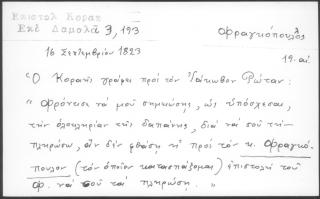 Επιστολ Κοραη
Εκδ Δαμαλά 3, 193
Φραγκόπουλος
16 Σεπτεμβρίου 1823
19. αι
Ὁ Κοραῆς γράφει πρὸς τὸν Ἰάκωβον Ρώταν:
" Φρόντισε νὰ μοῦ σημειώσῃς, ὡς ὑπόσχεσαι,
τὴν ὁλοκληρίαν τῆς δαπάνης, διὰ νὰ σοῦ τὴν
πληρώσω, ἂν δὲν φθάσῃ ἡ πρὸς τὸν κ. Φραγκό-
πουλον (τὸν ὁποῖον κατασπάζομαι) ἐπιστολή του
Φ. νὰ σοῦ τὰ πληρώσῃ. "